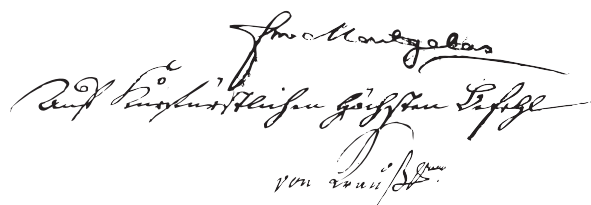 Frhr v Montgelas
Auf Kurfürstlichen höchsten Befehl
von Krauß